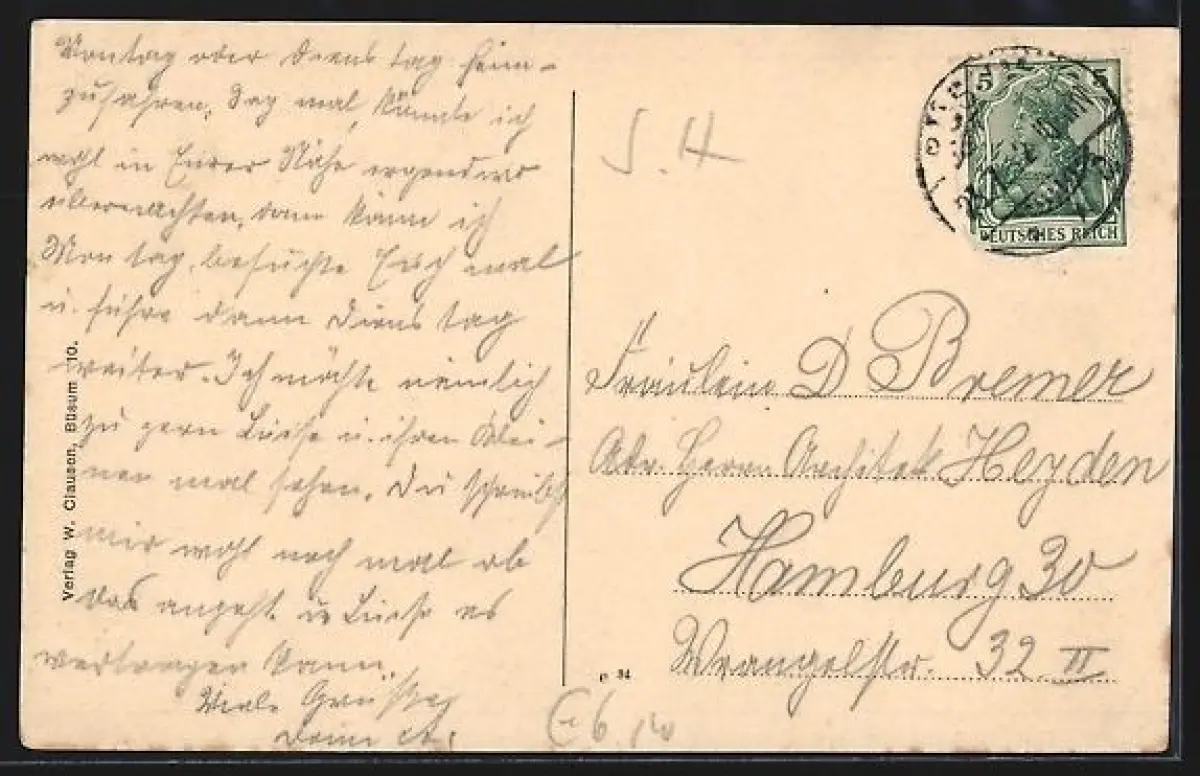 Montag oder Dienstag heim-
zufahren. Sag mal, könnte ich
wohl in Eurer Nähe irgendwo
übernachten, dann käme ich
Montag, besuchte Euch mal
u. führe dann Dienstag
weiter. Ich möchte nämlich
zu gern Luise u. ihren Klei-
nen mal sehen. Du schreibst
mir wohl noch mal ob
das angeht u Luise es
vertragen kann.
Viele Grüße
Deine
Verlag W. Clauson, Büsum 10.
S. H
5 5
DEUTSCHES REICH
Fräulein D Bremer
Adr. Herrn Architekt Heyden
Hamburg 30
Wrangelstr. 32 II
P 34